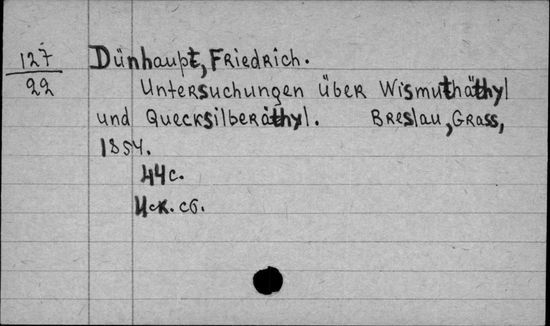 127
22
Dünhaupt, Friedrich.
Untersuchungen über Wismuthäthyl
und Quecksilberäthyl. Breslau, Grass,
1854.
44c.
Иск. сб.